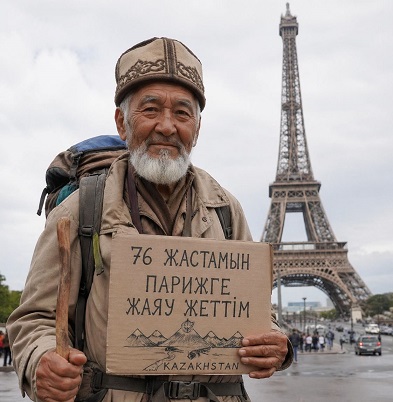 76 ЖАСТАМЫН
ПАРИЖГЕ
ЖАЯУ ЖЕТТІМ
KAZAKHSTAN